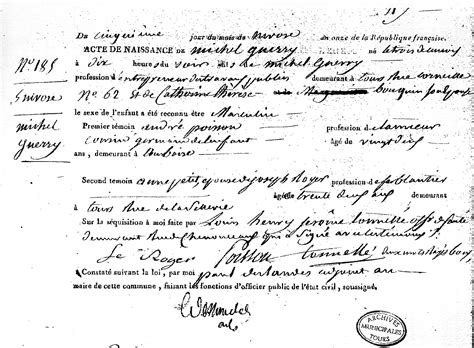 Du cinquième jour du mois de nivose an onze de la République française.
ACTE DE NAISSANCE de michel guerry né le trois du courant
No 185
à dix heures du soir fils de michel guerry
profession d'entrepreneur de travaux publics demeurant à tours rue
5 nivose
No 62 et de Catherine therese
michel
guerry
le sexe de l'enfant a été reconnu être Masculin
Premier témoin andré poisson profession de tanneur
cousin germain de l'enfant âgé de vingt neuf
ans, demeurant à Amboise
Second témoin anne petit épouse de joseph Roger profession de ferblantier
âgé de trente neuf ans demeurant
à tours rue de la
Sur la réquisition à moi faite par Louis henry jérôme tonnellé off. de santé
demeurant rue et a signé avec les témoins
Le Roger Poisson tonnellé
Constaté suivant la loi, par moi paul deslandes adjoint au
maire de cette commune, faisant les fonctions d'officier public de l'état civil, soussigné.
Deslandes
ARCHIVES
MUNICIPALES
TOURS